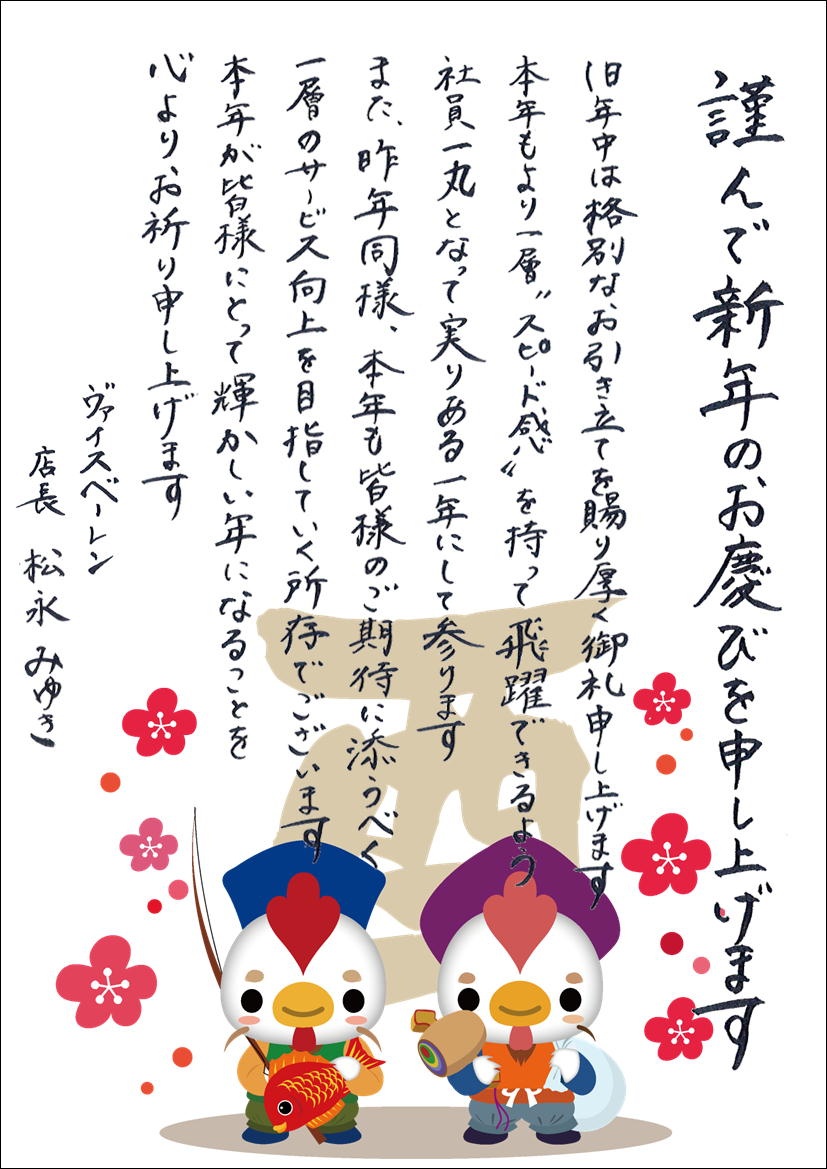 謹んで新年のお慶びを申し上げます
旧年中は格別なお引き立てを賜り厚く御礼申し上げます
本年もより一層〝スピード感〟を持って飛躍できるよう
社員一丸となって実りある一年にして参ります
また、昨年同様、本年も皆様のご期待に添うべく
一層のサービス向上を目指していく所存でございます
本年が皆様にとって輝かしい年になることを
心よりお祈り申し上げます
ヴァイスベーレン
店長 松永 みゆき
酉